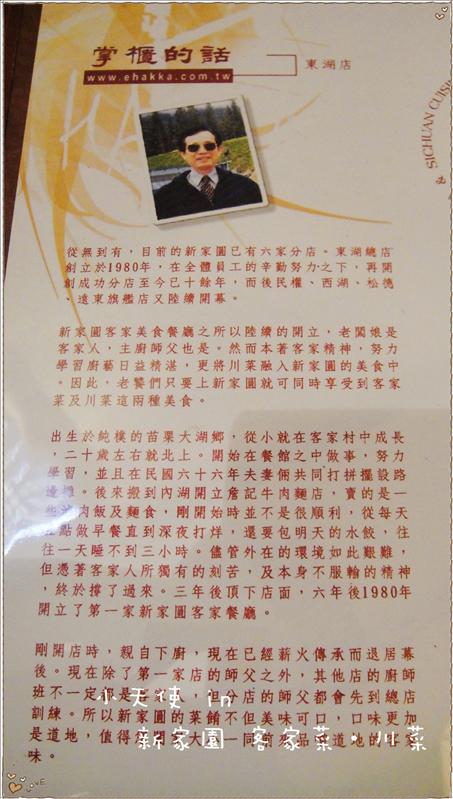 掌櫃的話
東湖店
www.ehakka.com.tw
SICHUAN CUIS
從無到有，目前的新家園已有六家分店。東湖總店
創立於1980年，在全體員工的辛勤努力之下，再開
創成功分店至今已十餘年，而後民權、西湖、松德
、遠東旗艦店又陸續開幕。
新家園客家美食餐廳之所以陸續的開立，老闆娘是
客家人，主廚師父也是。然而本著客家精神，努力
學習廚藝日益精湛，更將川菜融入新家園的美食中
。因此，老饕們只要上新家園就可同時享受到客家
菜及川菜這兩種美食。
出生於純樸的苗栗大湖鄉，從小就在客家村中成長
，二十歲左右就北上。開始在餐館之中做事，努力
學習，並且在民國六十六年夫妻倆共同打拼擺設路
邊攤。後來搬到內湖開立詹記牛肉麵店，賣的是一
些肉飯及麵食，剛開始時並不是很順利，從每天
點做早餐直到深夜打烊，還要包明天的水餃，往
往一天睡不到三小時。儘管外在的環境如此艱難，
但憑著客家人所獨有的刻苦，及本身不服輸的精神
，終於撐了過來。三年後頂下店面，六年後1980年
開立了第一家新家園客家餐廳。
剛開店時，親自下廚，現在已經薪火傳承而退居幕
後。現在除了第一家店的師父之外，其他店的廚師
班不一定都是客家人，但分店的師父都會先到總店
訓練。所以新家園的菜餚不但美味可口，口味更加
是道地，值得您大一同前品道地的客家
味。
小天使 in
新家園 客家菜・川菜